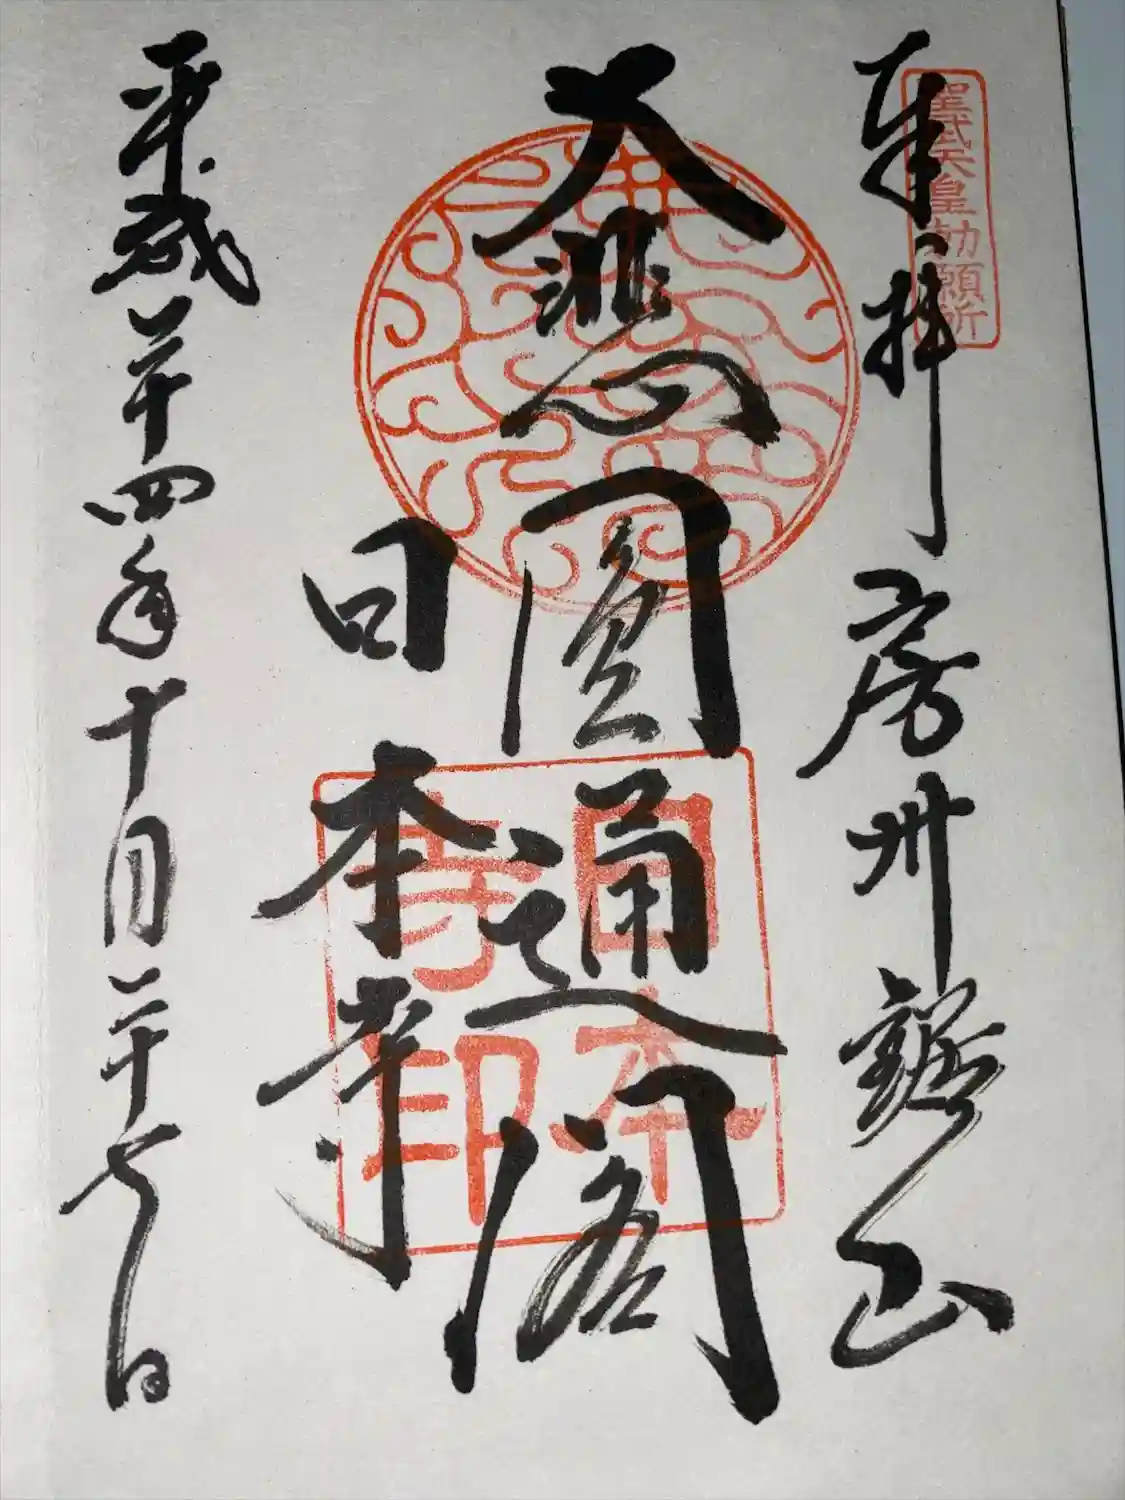 聖武天皇勅願所
奉拝 房州鋸山
大悲圓通閣
日本寺
日本寺印
平成二十四年十月二十七日